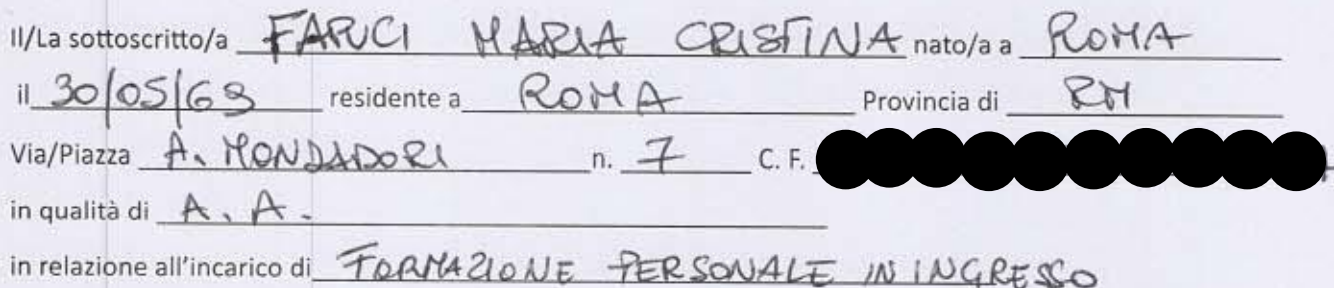 Il/La sottoscritto/a FARCI MARIA CRISTINA nato/a a ROMA
il 30/05/69 residente a ROMA Provincia di RM
Via/Piazza A. MONDADORI n. 7 C. F.
in qualità di A. A.
in relazione all'incarico di FORMAZIONE PERSONALE IN INGRESSO